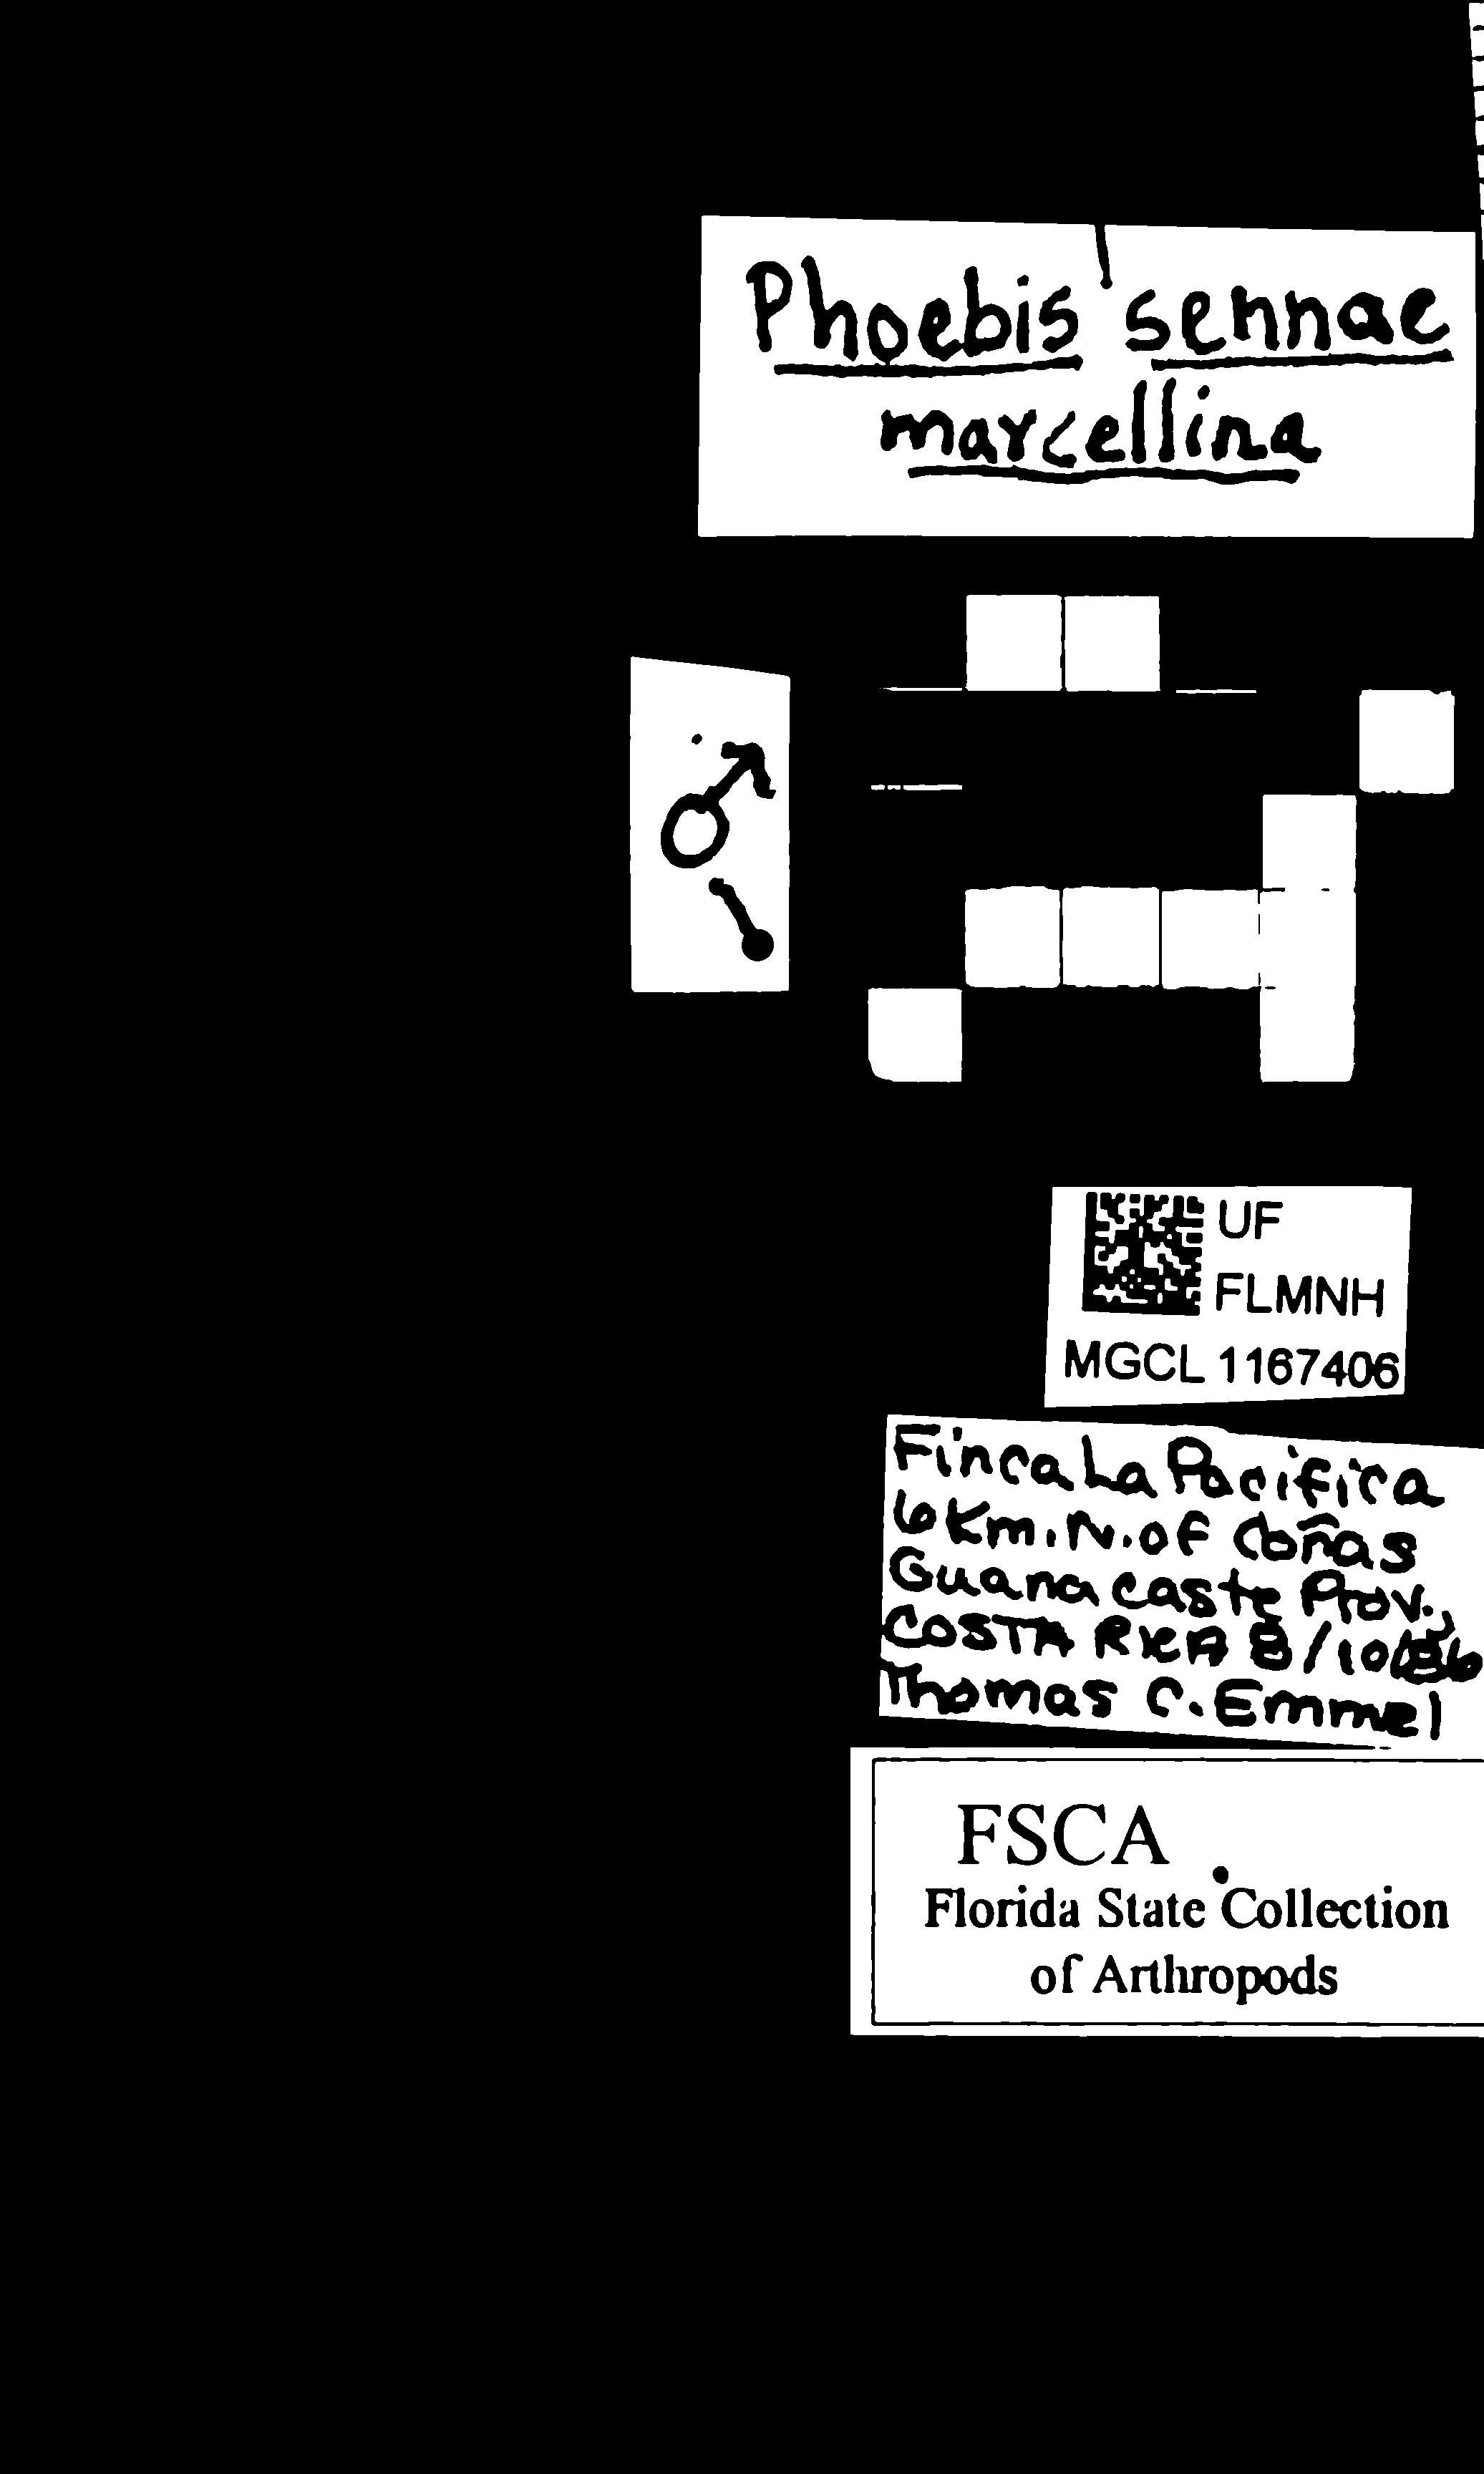 Phoebis sennae
marcellina
♂
UF
FLMNH
MGCL 1167406
Finca La Pacifica
6 Km. N. of Cañas
Guanacaste Prov.,
COSTA RICA 8/10/
Thomas C. Emmel
FSCA
Florida State Collection
of Arthropods